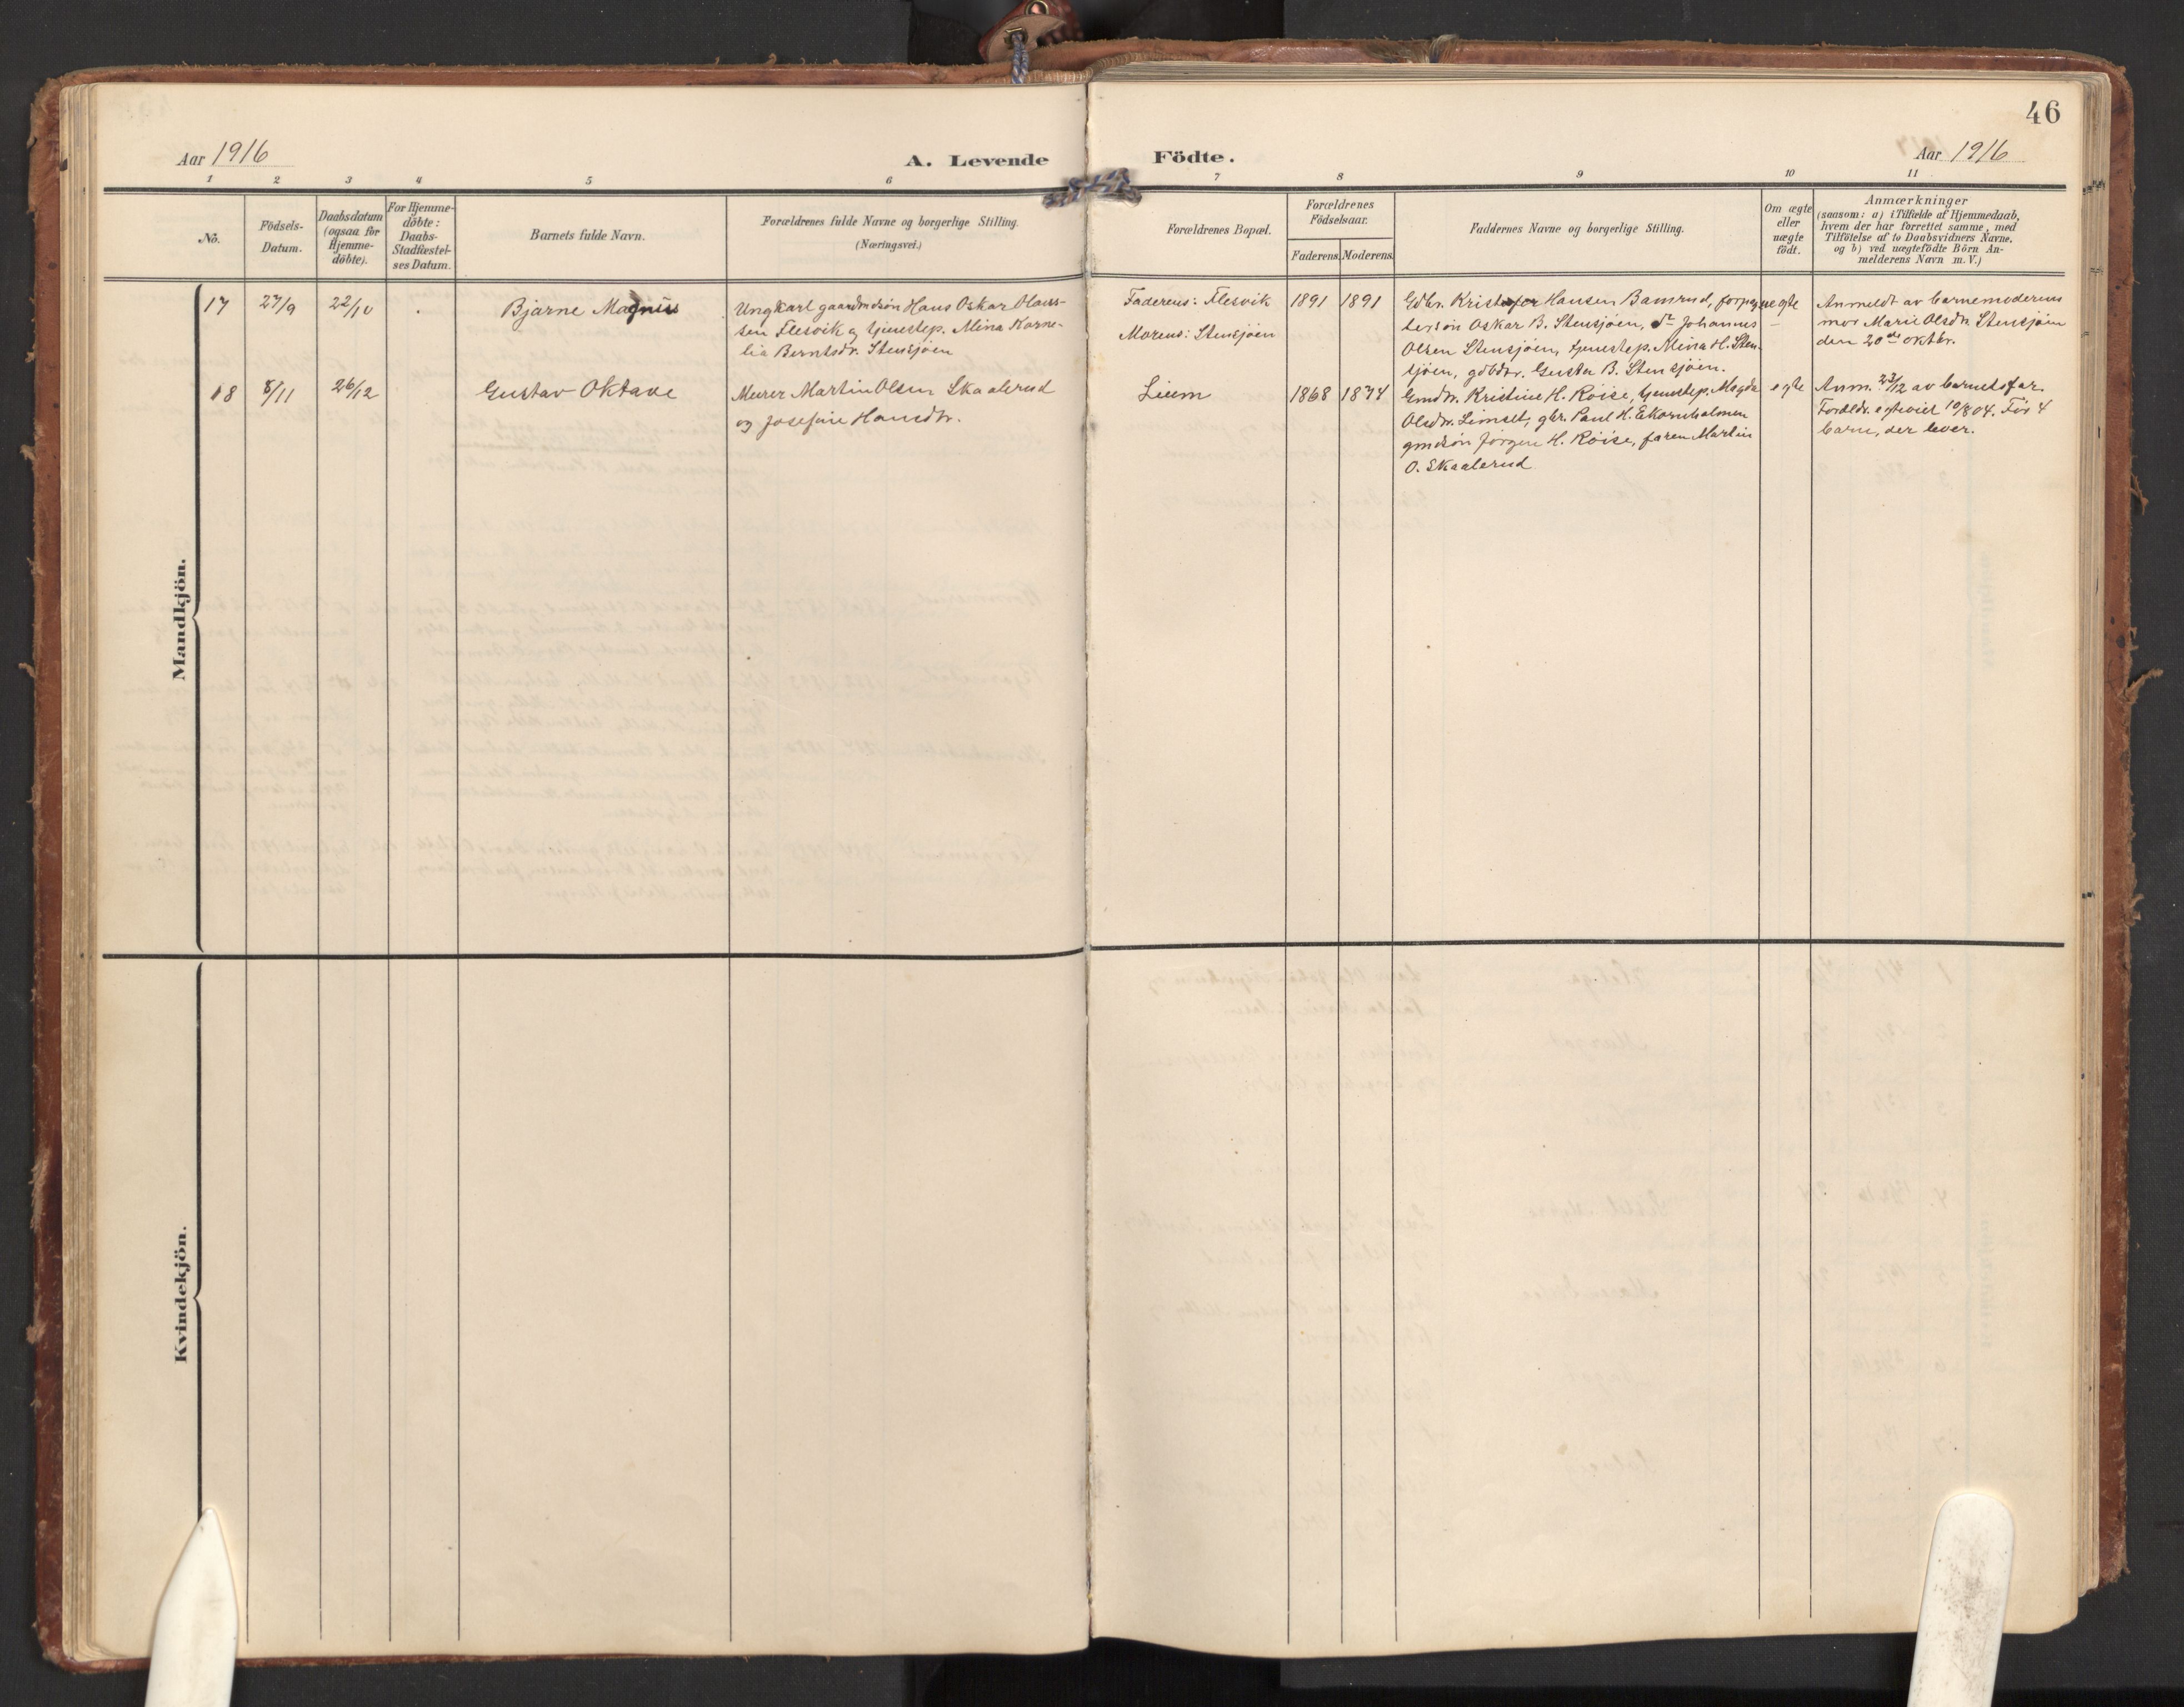 46
Aar 1916
A. Levende Födte.
Aar 1916
1 2 3 4 5 6 7 8 9 10 11
No.
Födsels-
Datum.
Daabsdatum
(ogsaa for
Hjemme-
döbte).
For Hjemme-
döbte:
Daabs-
Stadfæstel-
ses Datum.
Barnets fulde Navn.
Forældrenes fulde Navne og borgerlige Stilling.
(Næringsvei.)
Forældrenes Bopæl.
Forældrenes
Födselsaar.
Faderens. Moderens.
Faddernes Navne og borgerlige Stilling.
Om ægte
eller
uægte
födt.
Anmærkninger
(saasom: a) i Tilfælde af Hjemmedaab,
hvem der har forrettet samme, med
Tilföielse af to Daabsvidners Navne.
og b) ved uægtefödte Börn An-
melderens Navn m. V.)
Mandkjön.
17
27/9
22/10
Bjarne Magnus
Ungkarl gaardmdsön Hans Oskar Olaus-
sen Flesvik og tjenestep. Mina Karne-
lia Berntsdr. Stensjöen
Faderens: Flesvik
Morens: Stensjöen
1891
1891
Gdbr. Kristofer Hansen Bamrud, forpag-
tersön Oskar B. Stensjöen, do Johannes
Olsen Stensjöen, tjenestep. Mina H. Sten-
sjöen, gdbdtr. Gusta B. Stensjöen.
uegte
Anmeldt av barnemoderens
mor Marie Olsdr. Stensjöen
den 20de oktbr.
18
8/11
26/12
Gustav Oktave
Murer Martin Olsen Skaalerud
og Josefine Hansdtr.
Lium
1868
1874
Gmdtr. Kristine H. Röise, tjenestep. Magda
Olsdtr. Limset, gbr. Paul H. Ekornholmen
gmdsön Jörgen H. Röise, faren Martin
O. Skaalerud
egte
Anm. 23/12 av barnets far.
Foreldr. egteviet 10/8 04.För 4
barn, der lever.
Kvindekjön.